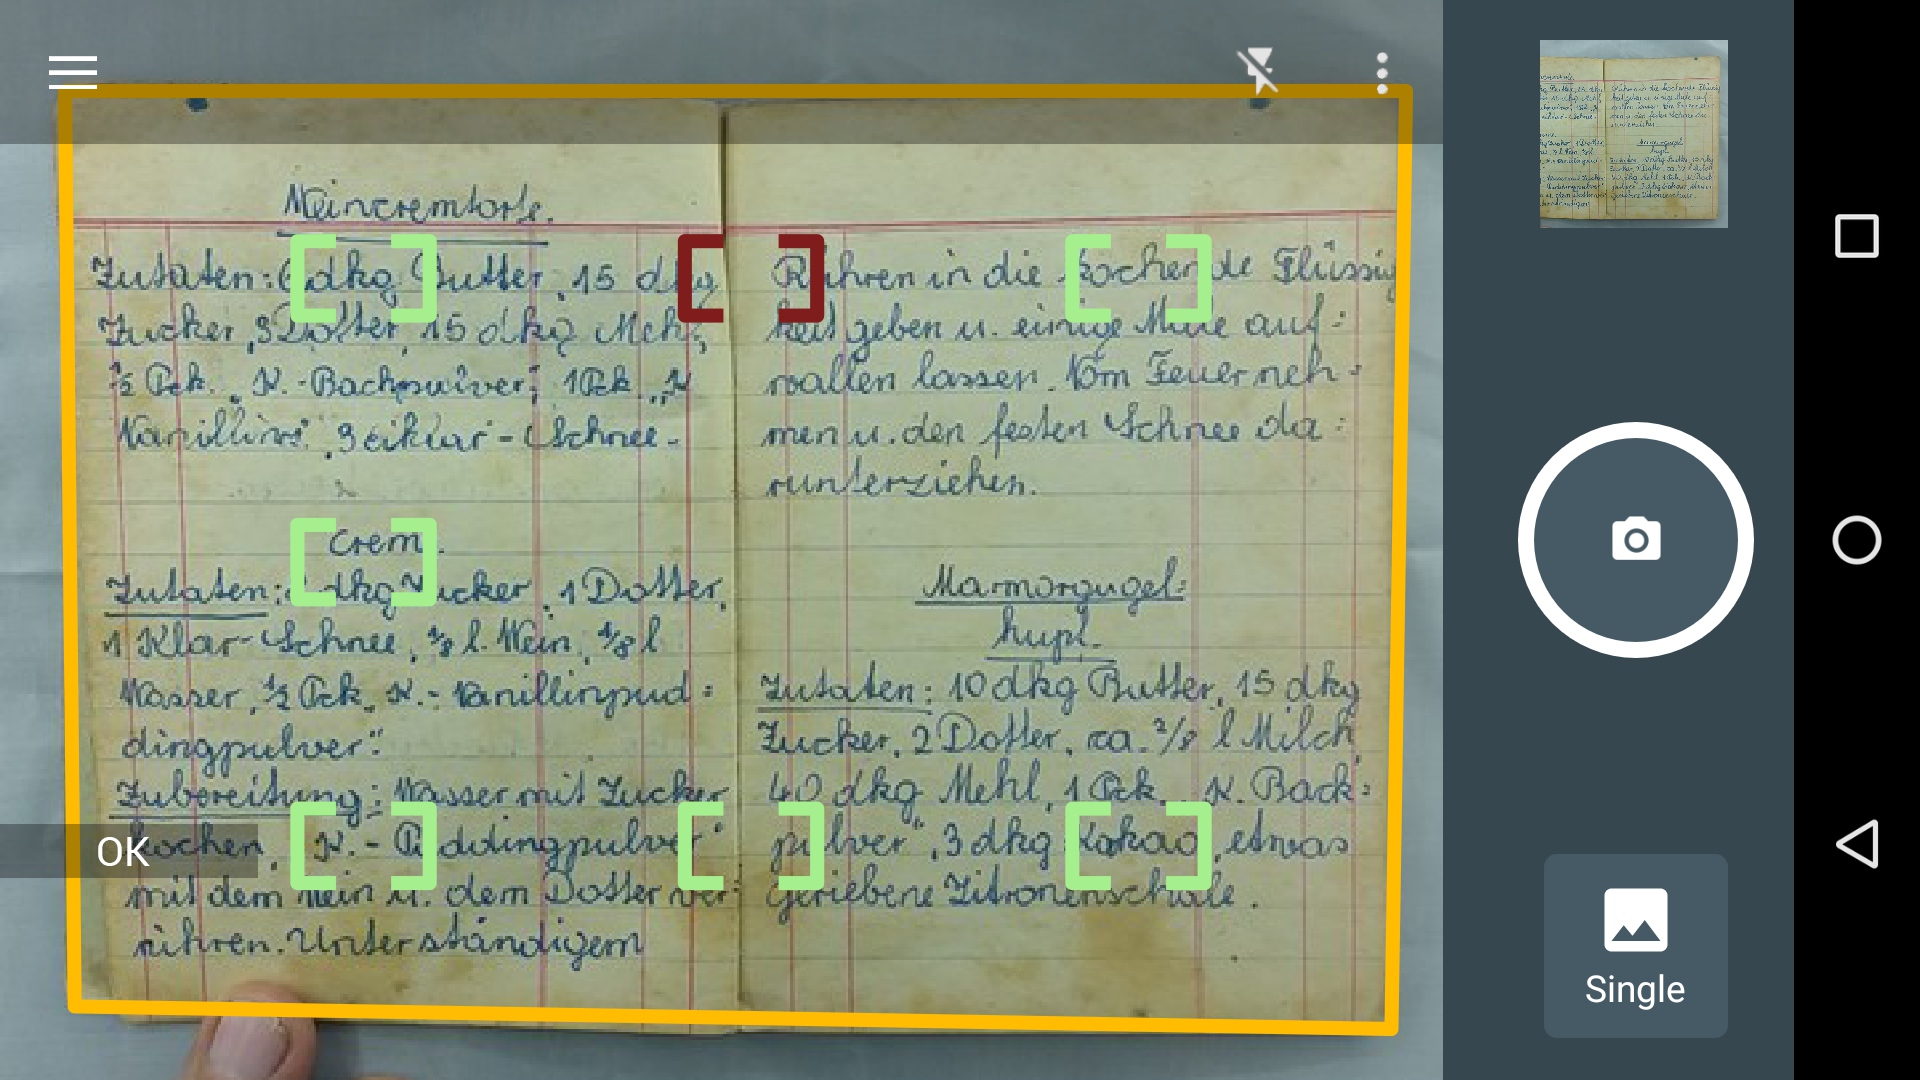 Weincremtorte.
Zutaten: dkg Butter, 15 dkg
Zucker, 3 Dotter, 15 dkg Mehl,
½ Pck. „N.-Backpulver", 1 Pck. „N
Vanillins", 3 eiklar-Schnee.
Crem.
Zutaten: dkg Zucker, 1 Dotter,
1 Klar-Schnee, ⅛ l. Wein, ⅛ l
Wasser, ½ Pck. „N.-Vanillinpud=
dingpulver".
Zubereitung: Wasser mit Zucker
kochen, „N.-Puddingpulver"
mit dem Wein u. dem Dotter ver=
rühren. Unter ständigem
Rühren in die kochende Flüssig
keit geben u. einige Male auf=
wallen lassen. Vom Feuer neh=
men u. den festen Schnee da=
runterziehen.
Marmorgugel=
hupf.
Zutaten: 10 dkg Butter, 15 dkg
Zucker, 2 Dotter, ca. ²/₈ l Milch,
40 dkg Mehl, 1 Pck. „N. Back=
pulver", 3 dkg Kakao, etwas
geriebene Zitronenschale.
OK
Single